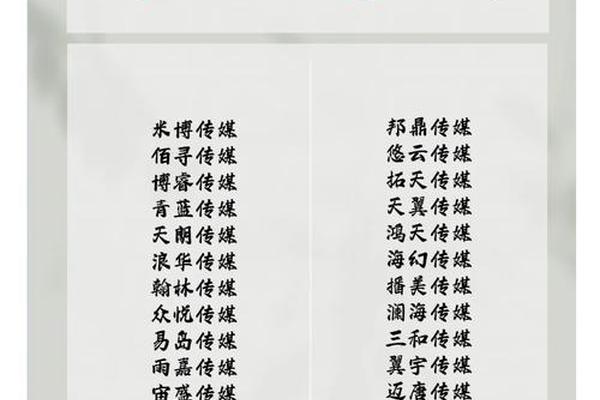 米博传媒
佰寻传媒
博睿传媒
青蓝传媒
天朗传媒
浪华传媒
翰林传媒
众悦传媒
易岛传媒
雨嘉传媒
宙盛传媒
邦鼎传媒
悠云传媒
拓天传媒
天翼传媒
鸿天传媒
海幻传媒
播美传媒
澜海传媒
三和传媒
翼宇传媒
迈唐传媒